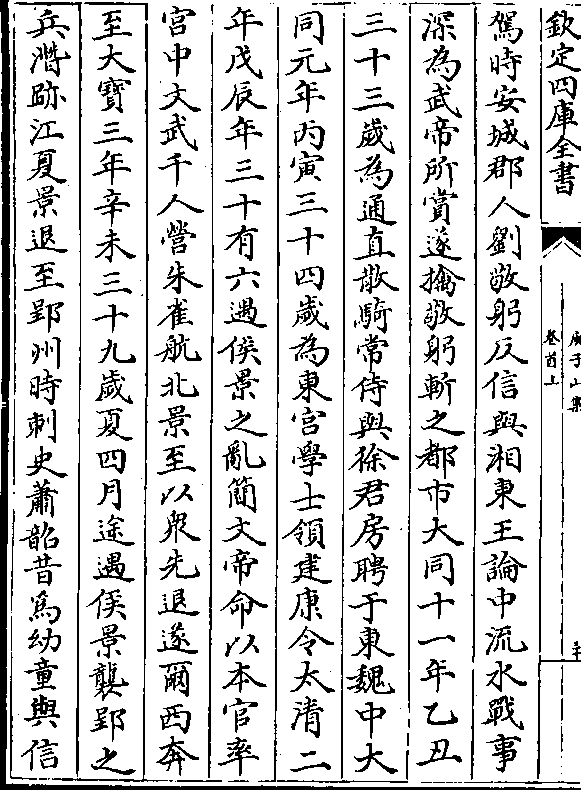 欽定四庫全書
庾子山集
卷首上
駕時安城郡人劉敬躬反信與湘東王論中流水戰事
深為武帝所賞遂擒敬躬斬之都市大同十一年乙丑
三十三歲為通直散騎常侍與徐君房聘于東魏中大
同元年丙寅三十四歲為東宮學士領建康令太清二
年戊辰年三十有六遇侯景之亂簡文帝命以本官率
宮中文武千人營朱雀航北景至以衆先退遂爾西奔
至大寶三年辛未三十九歲夏四月途遇侯景襲郢之
兵潛跡江夏景退至郢州時刺史蕭韶昔為幼童與信